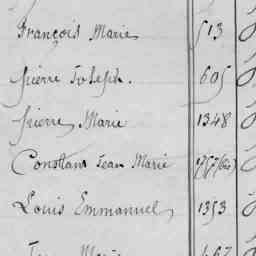 François Marie 513
Pierre Joseph. 605
Pierre Marie 1348
Constant Jean Marie 757 (bis)
Louis Emmanuel 1353
Jean Marie 467